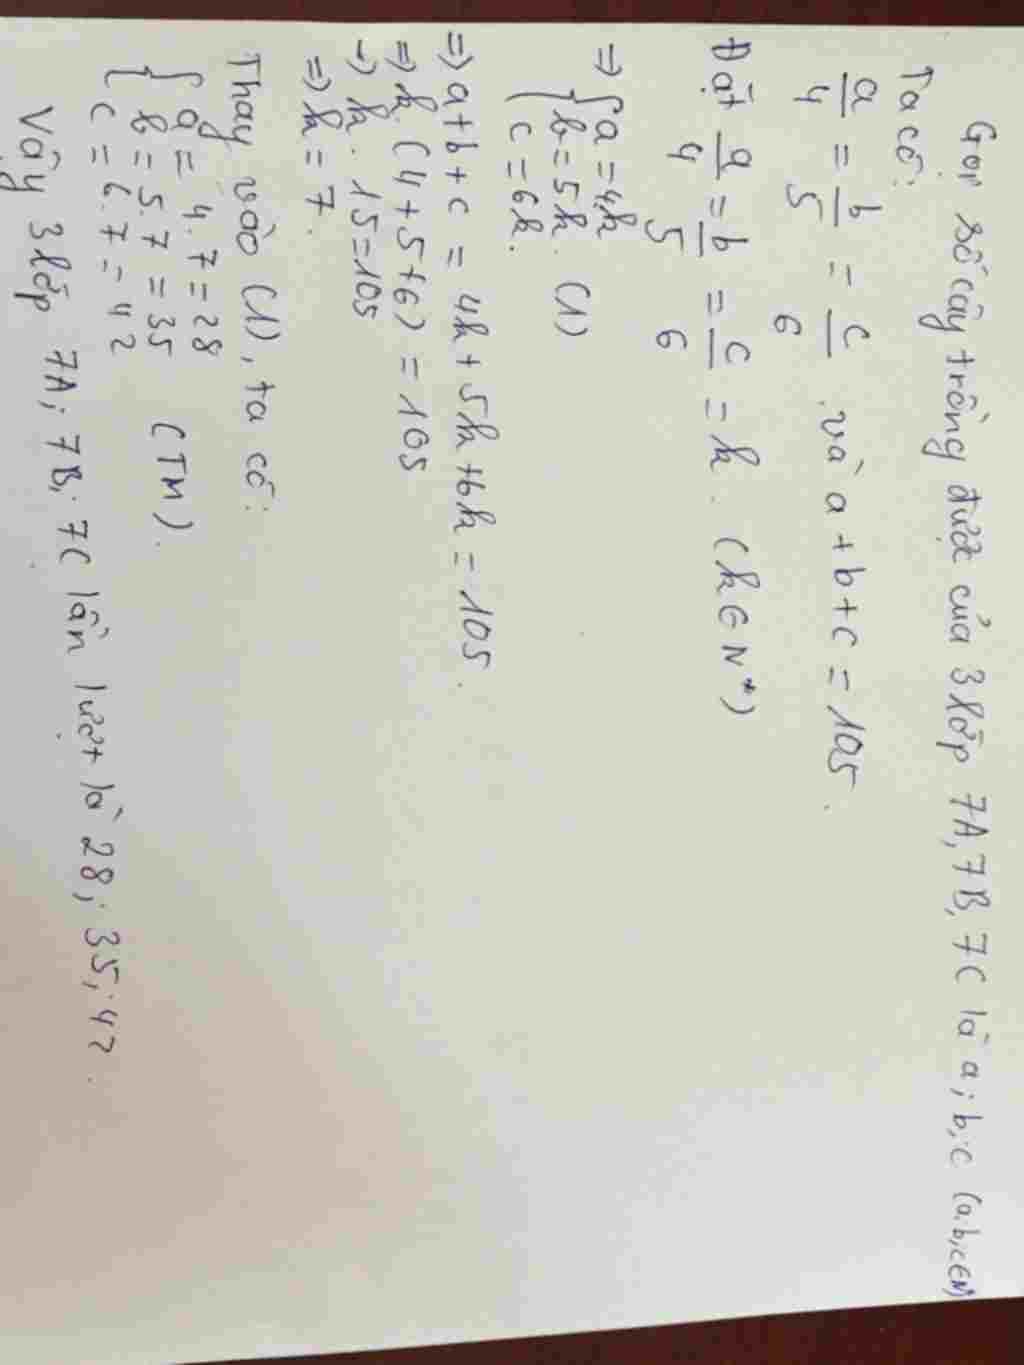 Gọi số cây trồng được của 3 lớp 7A, 7B, 7C là a; b; c (a,b,c∈N)
Ta có:
a/4 = b/5 = c/6 và a + b + c = 105.
Đặt a/4 = b/5 = c/6 = k. (k∈N*)
⇒ { a = 4k
b = 5k. (1)
c = 6k.
⇒ a + b + c = 4k + 5k + 6k = 105.
⇒ k (4 + 5 + 6) = 105
→ k. 15 = 105
⇒ k = 7.
Thay vào (1), ta có:
{ a = 4.7 = 28
b = 5.7 = 35 (TM).
c = 6.7 = 42
Vậy 3 lớp 7A; 7B; 7C lần lượt là 28; 35; 42.